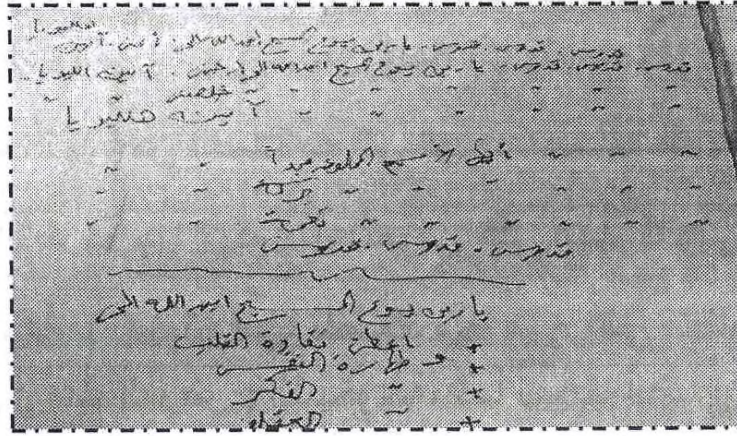 هلليلويا
قدوس. قدوس. قدوس. يا ربى يسوع المسيح ابن الله الحى. آمين. آمين
قدوس. قدوس. قدوس. يا ربى يسوع المسيح ابن الله الحى ارحمنى. آمين الليلويا.
〃 〃 〃 〃 〃 〃 خلصنى 〃 〃
〃 〃 〃 〃 〃 آمين هلليلويا
〃 〃 〃 أيها الاسم المملوء مجداً 〃 〃
〃 〃 〃 〃 〃 〃 بركة 〃 〃
〃 〃 〃 〃 〃 〃 نعمة 〃 〃
قدوس. قدوس. قدوس
يا ربى يسوع المسيح ابن الله الحى
+ اعطنى نقاوة القلب
+ و طهارة النفس
+ 〃 الفكر
+ 〃